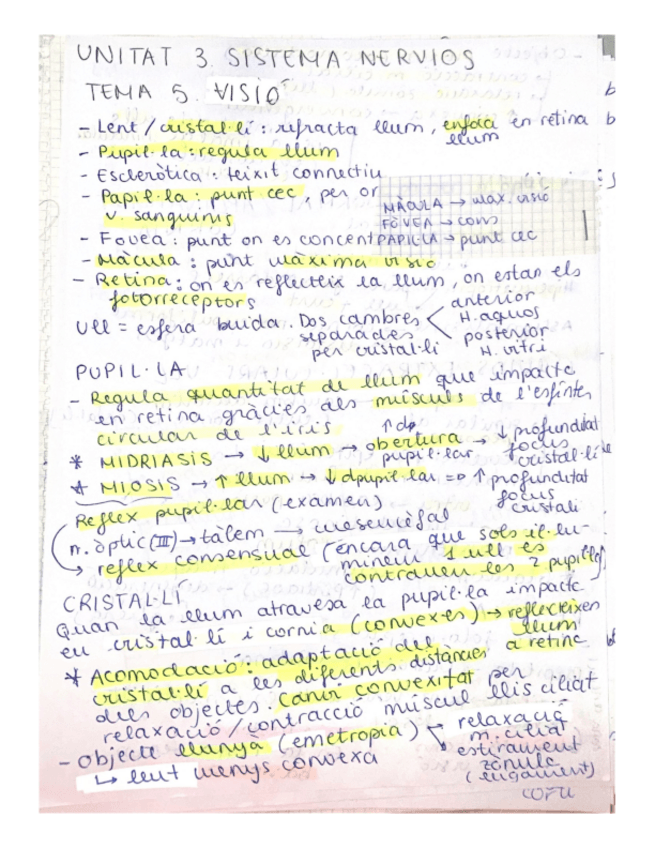 UNITAT 3. SISTEMA NERVIOS
TEMA 5. VISIÓ
- Lent / cristal·lí : refracta llum, enfoca en retina
llum
- Pupil·la : regula llum
- Escleròtica : teixit connectiu
- Papil·la : punt cec, per on
v. sanguinis
MÀCULA → màx. visió
FÒVEA → cons
PAPIL·LA → punt cec
- Fovea : punt on es concent
- Màcula : punt màxima visió
- Retina : on es reflecteix la llum, on estan els
fotorreceptors
Ull = esfera buida. Dos cambres
separades
per cristal·lí
anterior
H. aquos
posterior
H. vitri
PUPIL·LA
- Regula quantitat de llum que impacte
en retina gràcies als músculs de l'esfínter
circular de l'iris
* MIDRIASIS → ↓ llum → ↑ d. obertura pupil·lar → ↓ profunditat
focus
cristal·lí
* MIOSIS → ↑ llum → ↓ d pupil·lar => ↑ profunditat
focus
cristalí
Reflex pupil·lar (examen)
n. òptic (III) → tàlem → mesencèfal
→ reflex consensual (encara que sols il·lu-
minem 1 ull es
contrauen les 2 pupil·les)
CRISTAL·LÍ
Quan la llum atravesa la pupil·la impacte
en cristal·lí i cornia (convexes) → reflecteixen
llum
a retina
* Acomodació : adaptació del
cristal·lí a les diferents distàncies
dels objectes. Canvi convexitat per
relaxació / contracció múscul llis ciliat
- Objecte llunyà (emetropia)
↳ lent menys convexa
relaxació
m. ciliat
estirament
zónula
(lligament)
COFU